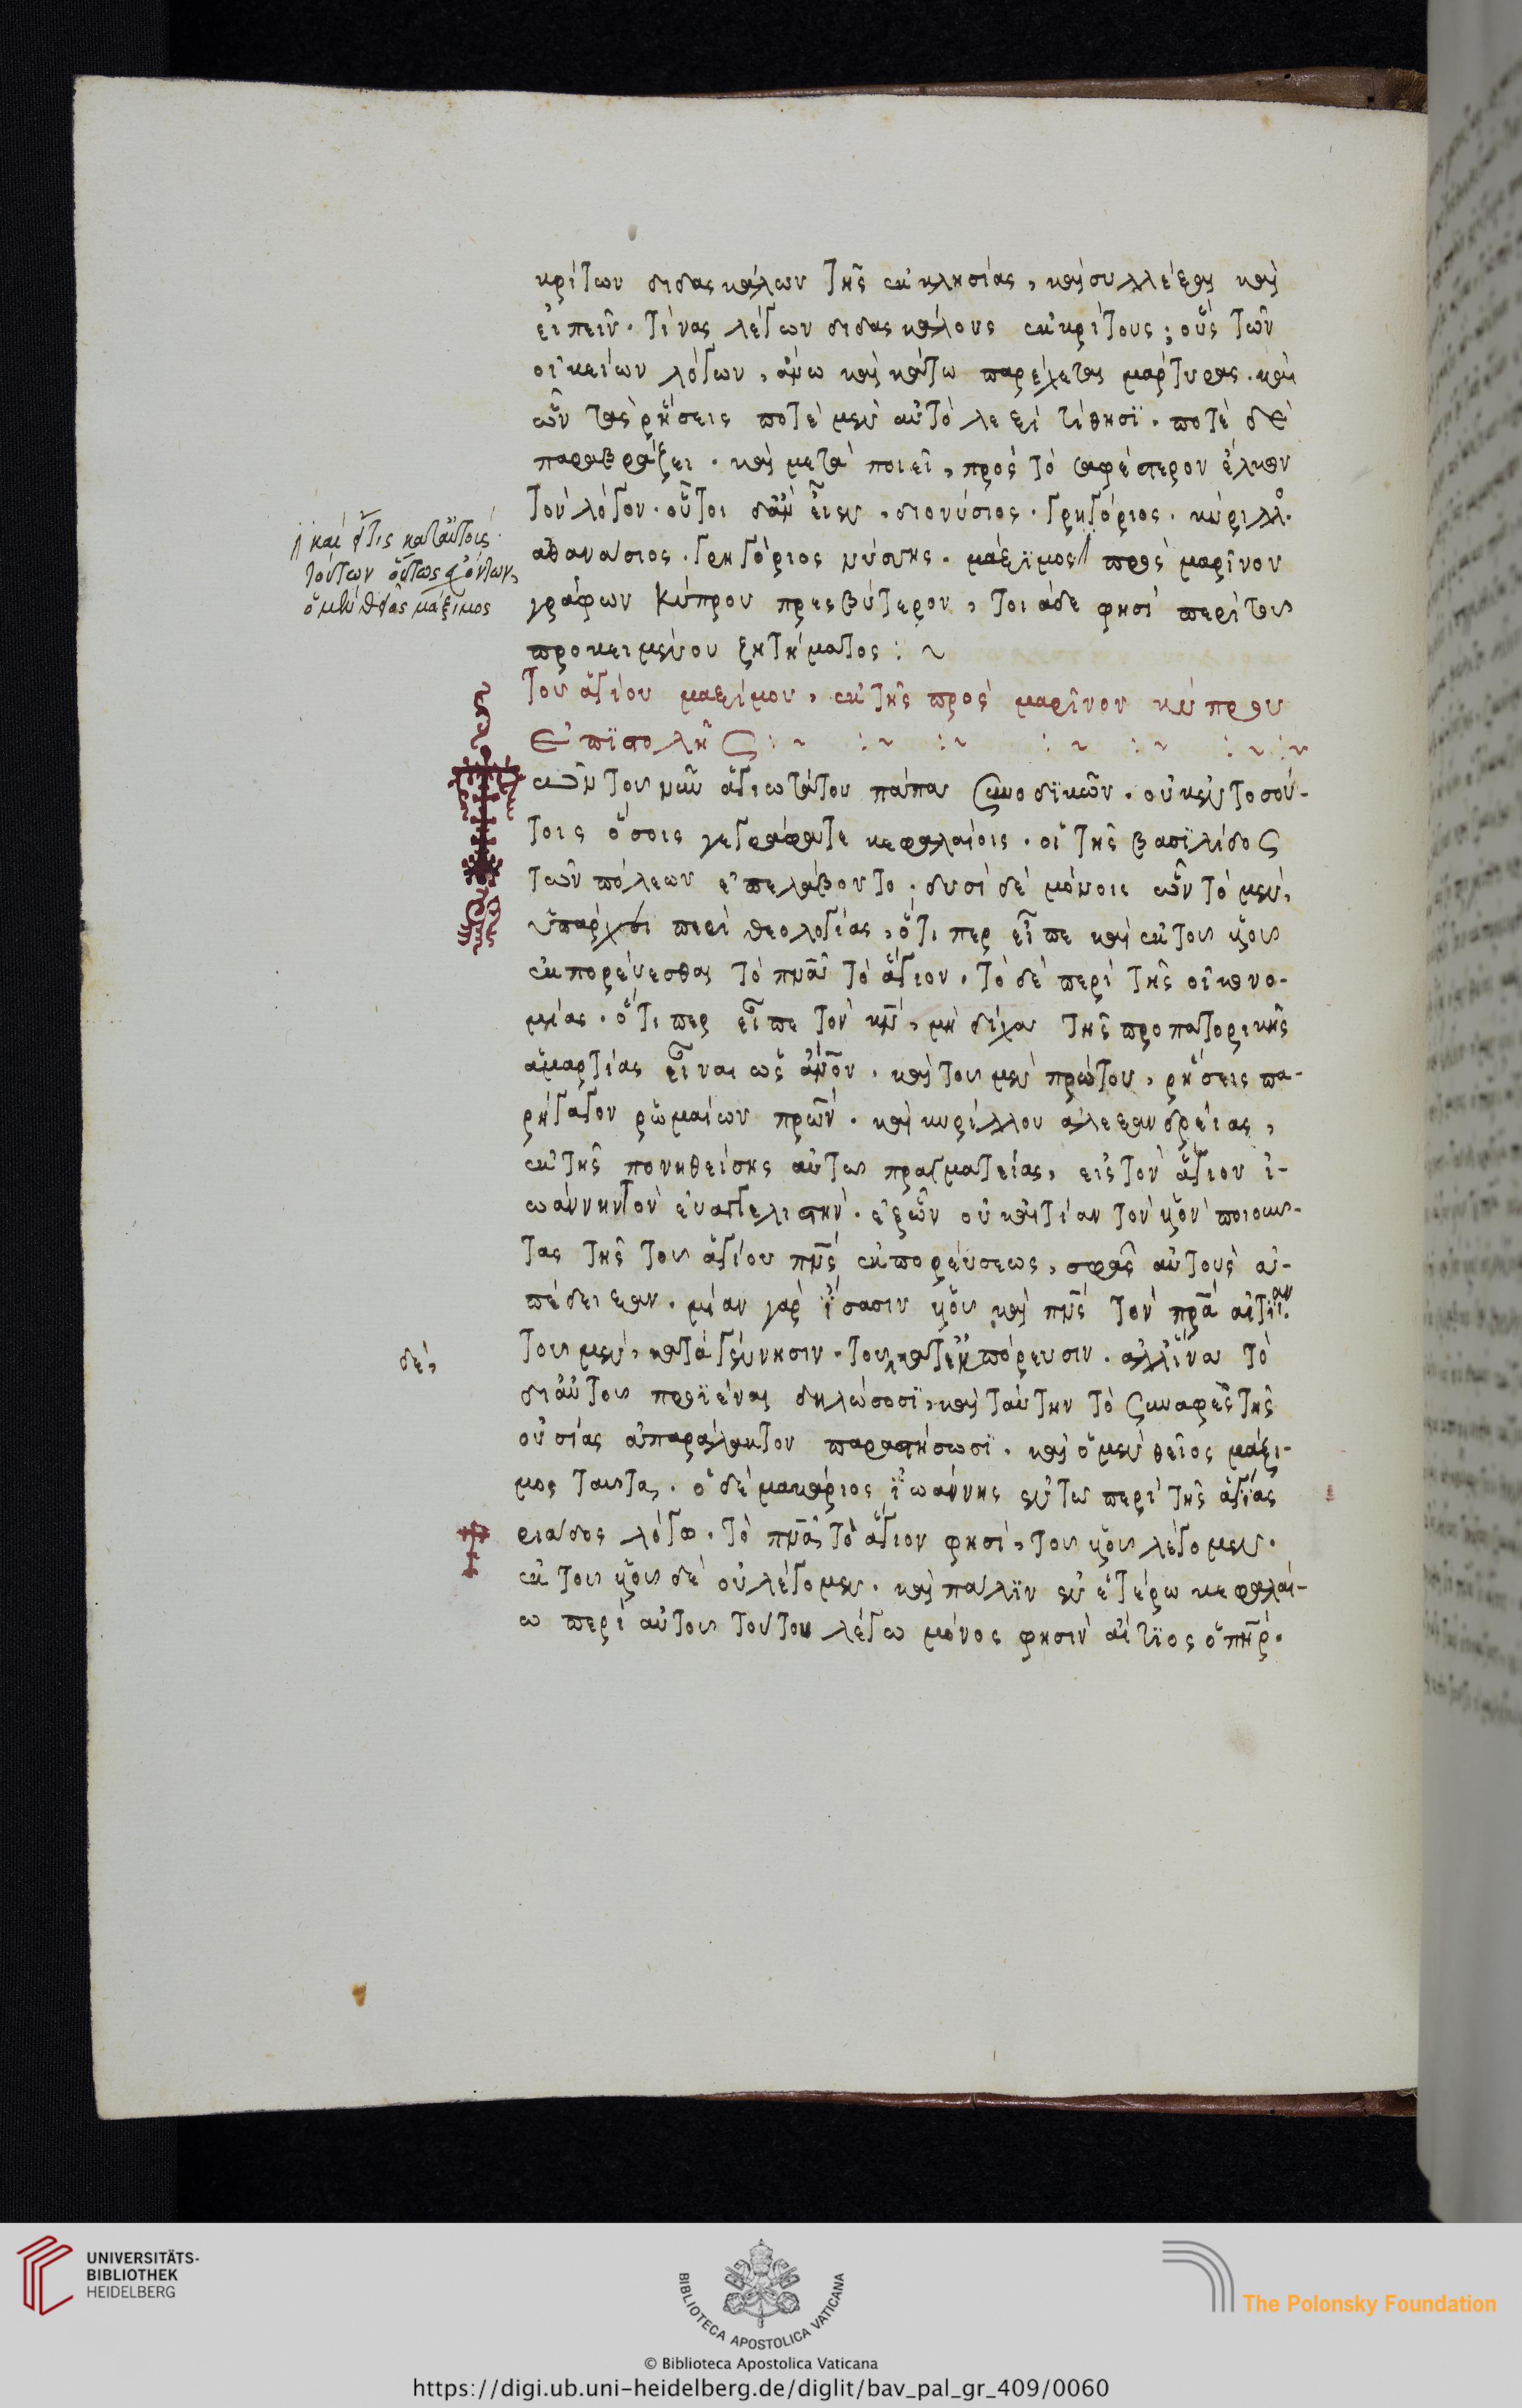 κρίτων διδασκάλων τῆς ἐκκλησίας, καὶ συλλέξαι καὶ
εἰπεῖν. τίνας λέγων διδασκάλους ἐκκρίτους; οὓς τῶν
οἰκείων λόγων, ἄνω καὶ κάτω παρέχεται μάρτυρας. καὶ
ὧν τὰς ῥήσεις ποτὲ μὲν αὐτολεξὶ τίθησϊ. ποτὲ δὲ
παραφράζει. καὶ μετα ποιεῖ, πρὸς τὸ σαφέστερον ἕλκων
τὸν λόγον. οὗτοι δ' ἂν εἶεν, διονύσιος. γρηγόριος. κύριλλος.
ἀθανάσιος. γρηγόριος νύσσης. μάξϊμος πρὸς μαρῖνον
γράφων κύπρου πρεσβύτερον, τοιάδε φησὶ περὶ τοῦ
προκειμένου ζητήματος : ~
καὶ
κατ' αὐτούς
τούτων οὕτως
μάξιμος
τοῦ ἁγίου μαξίμου, ἐκ τῆς πρὸς μαρῖνον κύπρου
ἐπϊστολῆς : ~ : ~ : ~ : ~ : ~ : ~ : ~
τῶν τοῦ νῦν ἁγιωτάτου πάπα συνοδϊκῶν. οὐκ ἐν τοσού-
τοις ὅσοις γεγράφατε κεφαλαίοις. οἱ τῆς βασϊλίδος
τῶν πόλεων ἐπελάβοντο. δυσὶ δὲ μόνοις ὧν τὸ μὲν,
ὑπάρχει περὶ θεολογίας, ὅτι περ εἶπε καὶ ἐκ τοῦ υἱοῦ
ἐκπορεύεσθαι τὸ πνᾶ τὸ ἅγιον. τὸ δὲ περὶ τῆς οἰκονο-
μίας. ὅτι περ εἶπε τὸν κν̄, μὴ δίχα τῆς προπατορικῆς
ἁμαρτίας εἶναι ὡς ἄνον. καὶ τοῦ μὲν πρώτου, ῥήσεις πα-
ρήγαγον ῥωμαίων πρων. καὶ κυρίλλου ἀλεξανδρείας,
ἐκ τῆς πονηθείσης αὐτῶ πραγματείας, εἰς τὸν ἅγιον ἰ-
ωάννην τὸν εὐαγγελιστήν. ἐξ ὧν οὐκ αἰτίαν τὸν υἱὸν ποιοῦν-
τας τῆς τοῦ ἁγίου πνς ἐκπορεύσεως, σφᾶς αὐτοὺς ἀ-
πέδειξαν. μίαν γὰρ ἴσασιν υἱοῦ καὶ πνς τὸν πρα αἰτίαν.
δὲ,
τοῦ μὲν, κατὰ γέννησιν. τοῦ κατ' ἐκπόρευσιν. ἀλλ' ἵνα τὸ
δι' αὐτοῦ προϊέναι δηλώσωσϊ, καὶ ταύτην τὸ συναφὲς τῆς
οὐσίας ἀπαράλλακτον παραστήσωσϊ. καὶ ὁ μὲν θεῖος μάξι-
μος ταῦτα. ὁ δὲ μακάριος ϊωάννης ἐν τῶ περὶ τῆς ἁγίας
ριάδος λόγω. τὸ πνᾶ τὸ ἅγιον φησὶ, τοῦ υἱοῦ λέγομεν.
ἐκ τοῦ υἱοῦ δὲ οὐ λέγομεν. καὶ πάλϊν ἐν ἑτέρω κεφαλαί-
ω περὶ αὐτοῦ τούτου λέγω μόνος φησὶν αἴτϊος ὁ πηρ.
UNIVERSITÄTS-
BIBLIOTHEK
HEIDELBERG
BIBLIOTECA APOSTOLICA VATICANA
The Polonsky Foundation
© Biblioteca Apostolica Vaticana
https://digi.ub.uni-heidelberg.de/diglit/bav_pal_gr_409/0060